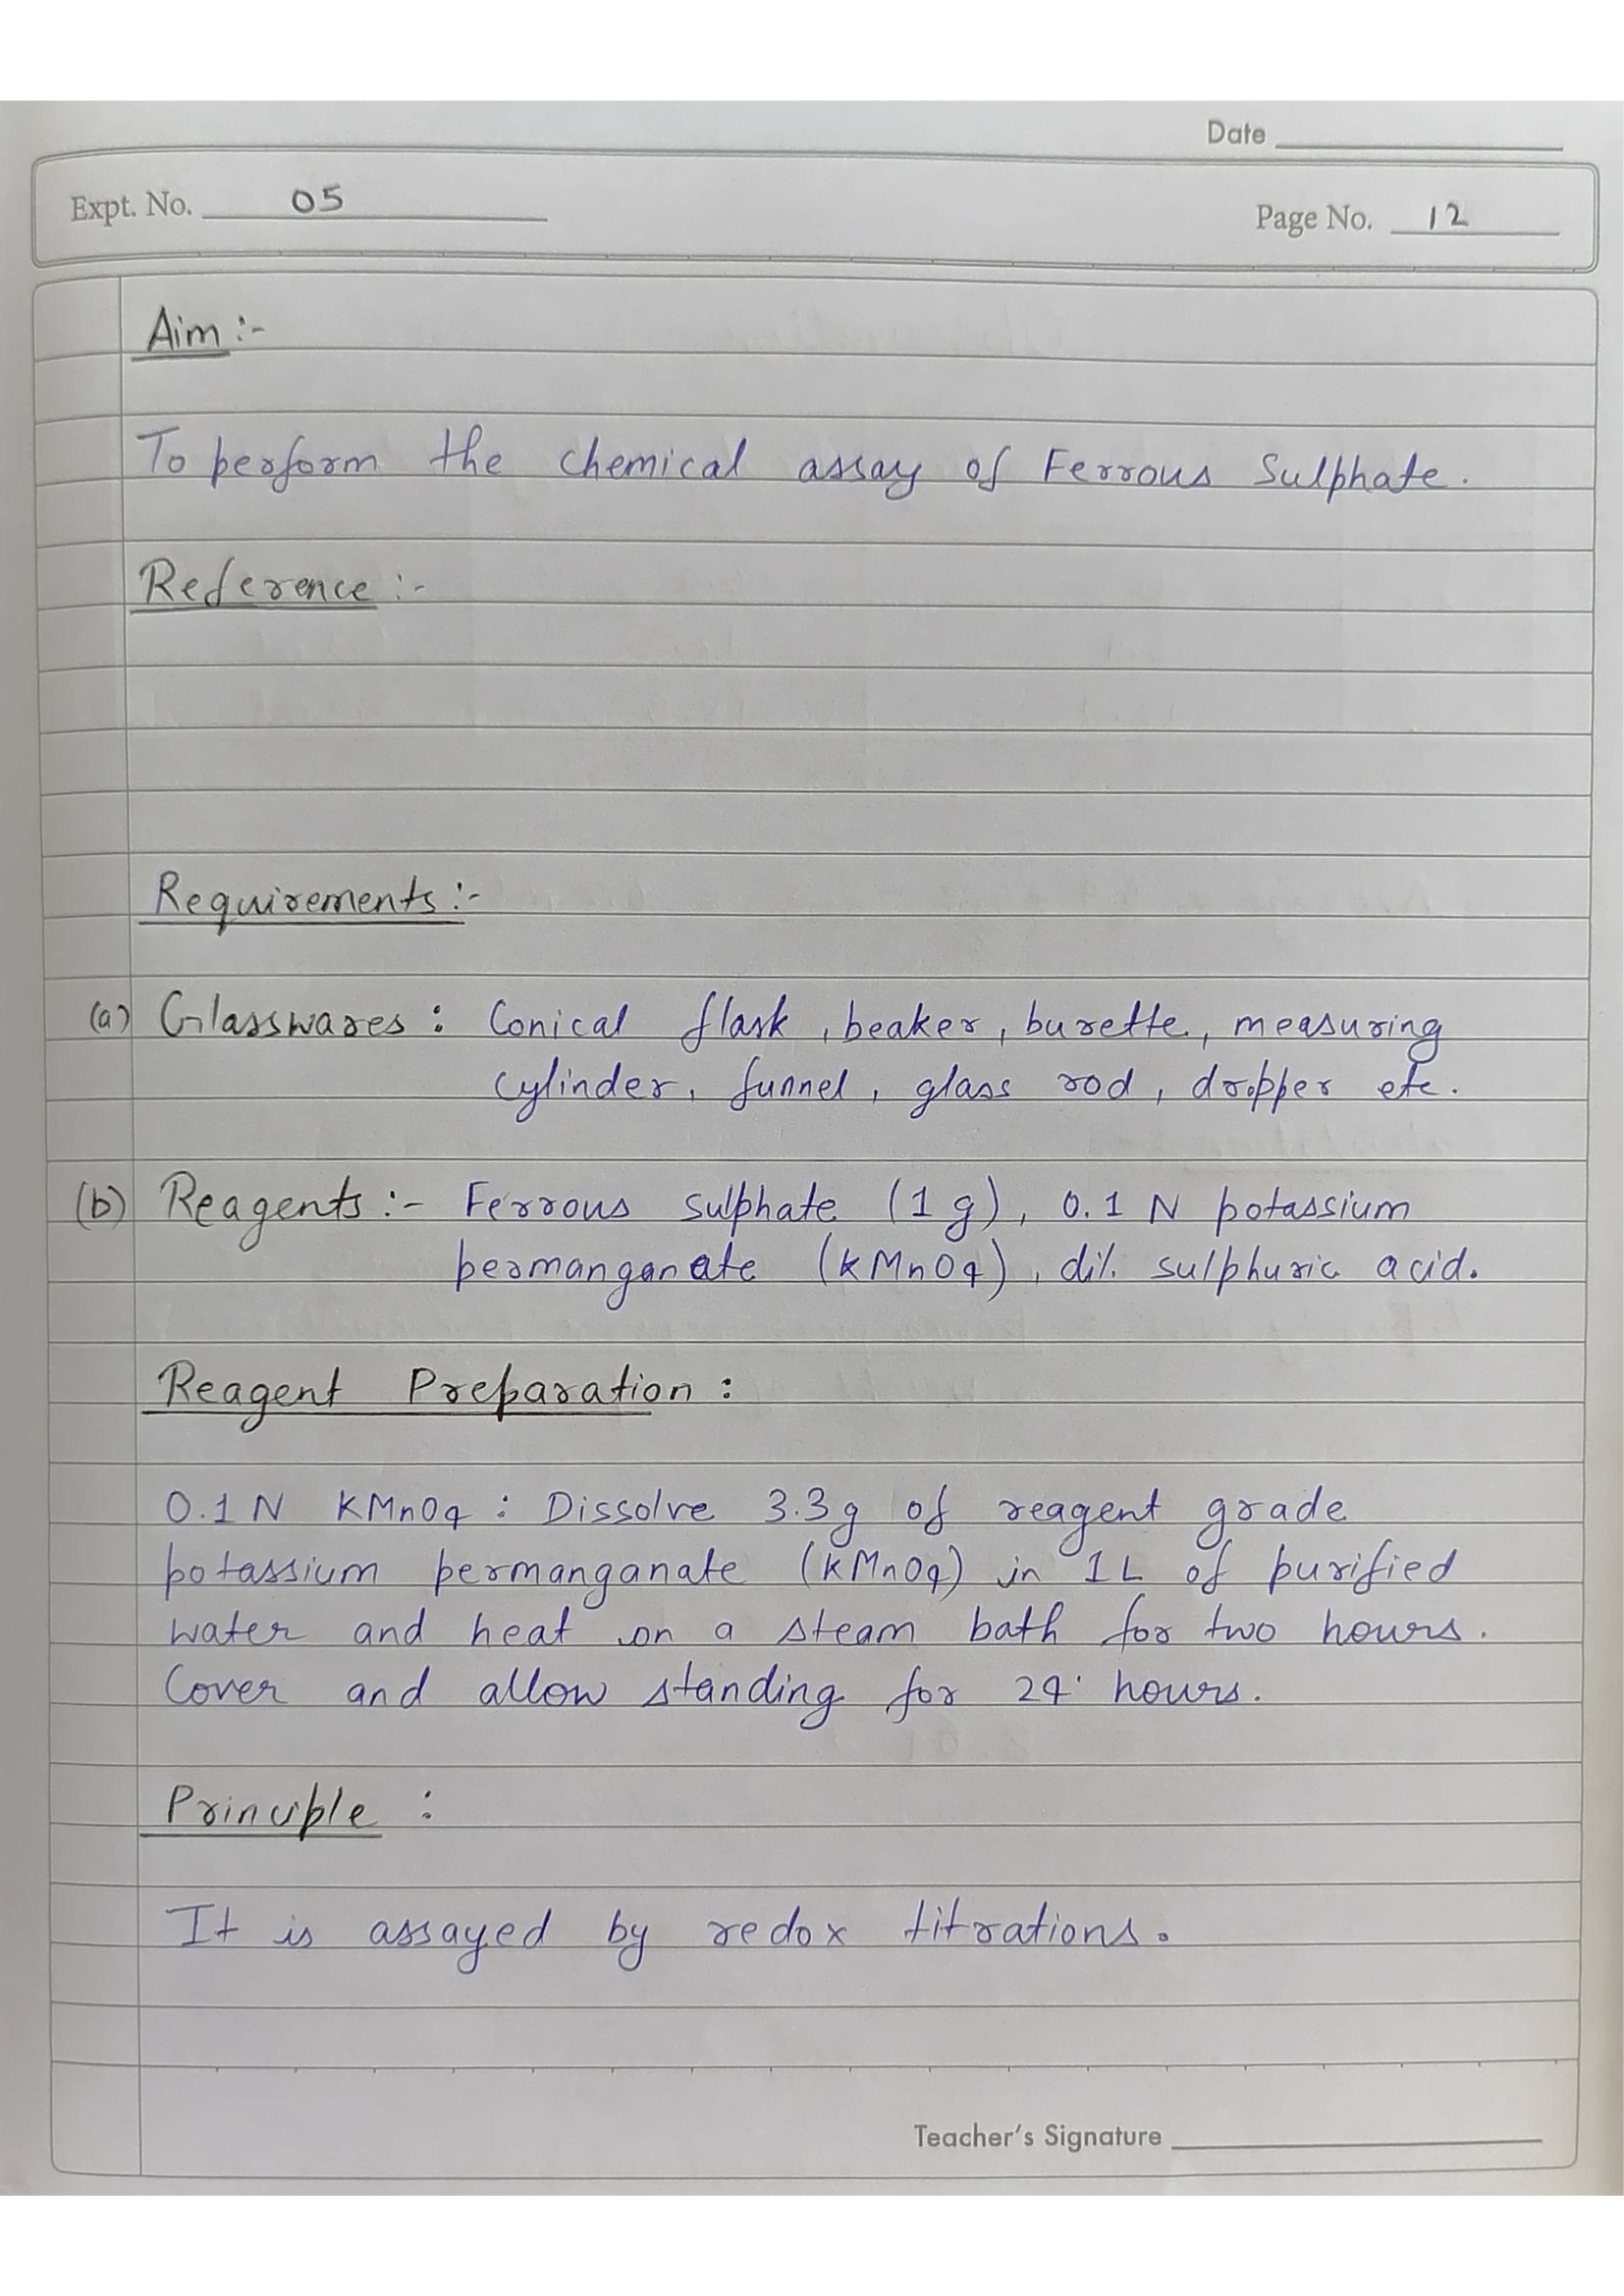 Date
Expt. No. 05
Page No. 12
Aim :-
To perform the chemical assay of Ferrous Sulphate.
Reference :-
Requirements :-
(a) Glasswares : Conical flask, beaker, burette, measuring
cylinder, funnel, glass rod, dropper etc.
(b) Reagents :- Ferrous sulphate (1 g), 0.1 N potassium
permanganate (KMnO4), dil. sulphuric acid.
Reagent Preparation :
0.1 N KMnO4 : Dissolve 3.3g of reagent grade
potassium permanganate (KMnO4) in 1L of purified
water and heat on a steam bath for two hours.
Cover and allow standing for 24 hours.
Principle :
It is assayed by redox titrations.
Teacher's Signature